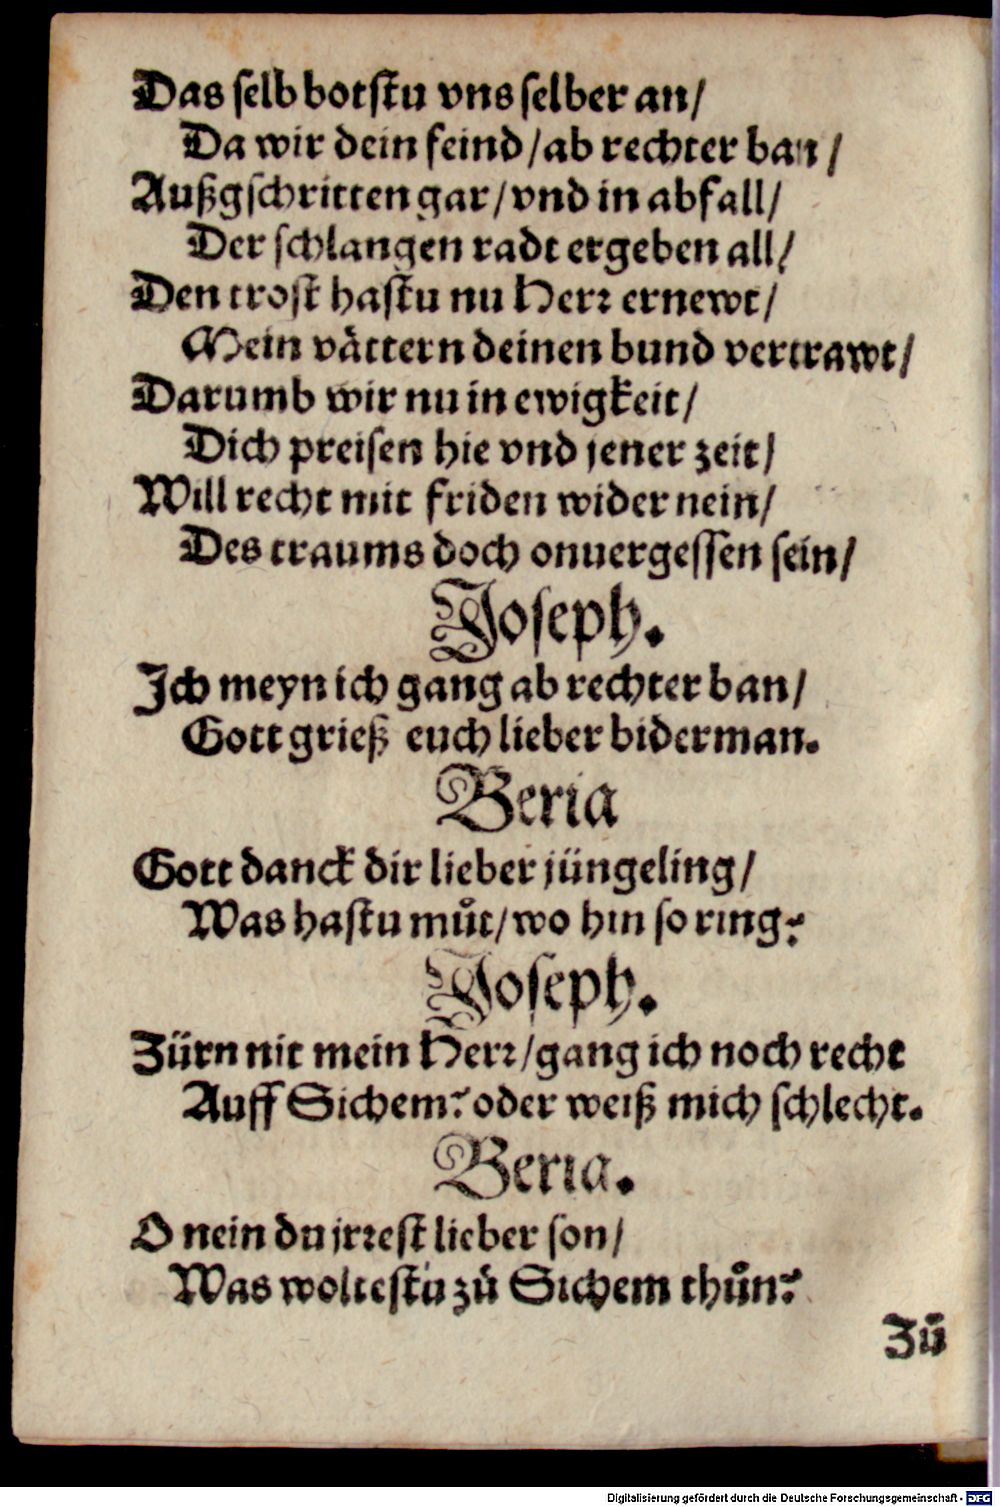 Das ſelb botſtu vns ſelber an/
Da wir dein feind/ab rechter ban/
Außgſchritten gar/vnd in abfall/
Der ſchlangen radt ergeben all/
Den troſt haſtu nu Herꝛ ernewt/
Mein våttern deinen bund vertrawt/
Darumb wir nu in ewigkeit/
Dich preiſen hie vnd jener zeit/
Will recht mit friden wider nein/
Des traums doch onuergeſſen ſein/
Joſeph.
Ich meyn ich gang ab rechter ban/
Gott grieß euch lieber biderman.
Beria
Gott danck dir lieber jüngeling/
Was haſtu můt/wo hin ſo ring?
Joſeph.
Zürn nit mein Herꝛ/gang ich noch recht
Auff Sichem? oder weiß mich ſchlecht.
Beria.
O nein du jrꝛeſt lieber ſon/
Was wolteſtu zů Sichem thůn?
Zů
Digitalisierung gefördert durch die Deutsche Forschungsgemeinschaft - DFG